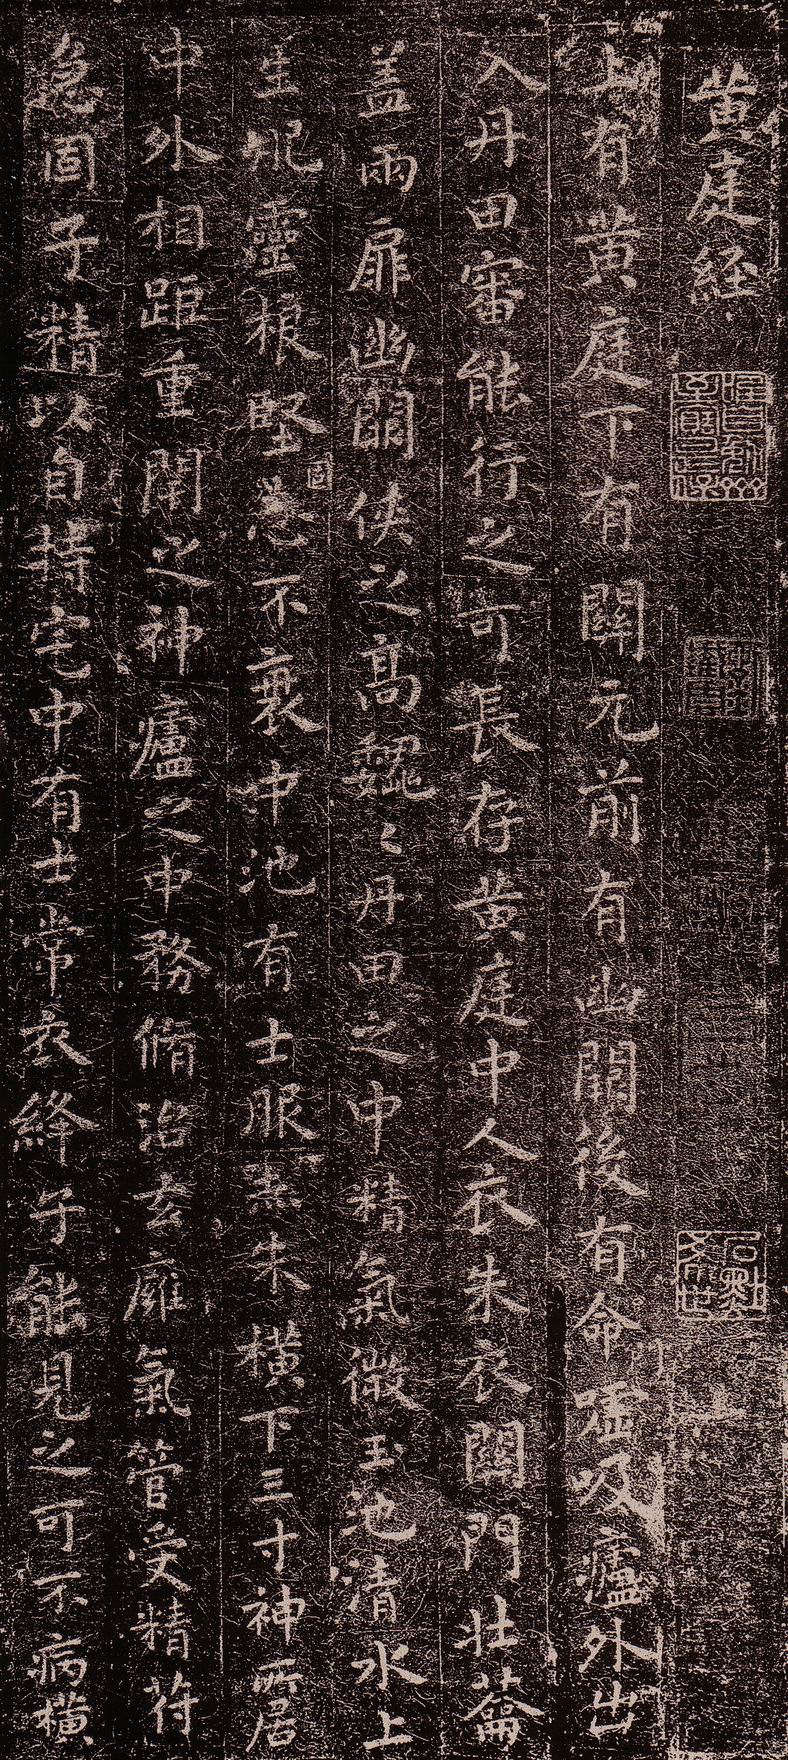 黄庭経
上有黄庭下有關元前有幽闕後有命嘘吸廬外出
入丹田審能行之可長存黄庭中人衣朱衣關門壮蘥
盖兩扉幽闕侠之髙巍〻丹田之中精氣微玉池清水上
生肥靈根堅志不衰中池有士服赤朱横下三寸神所居
中外相距重閉之神廬之中務脩治玄廱氣管受精符
急固子精以自持宅中有士常衣絳子能見之可不病横